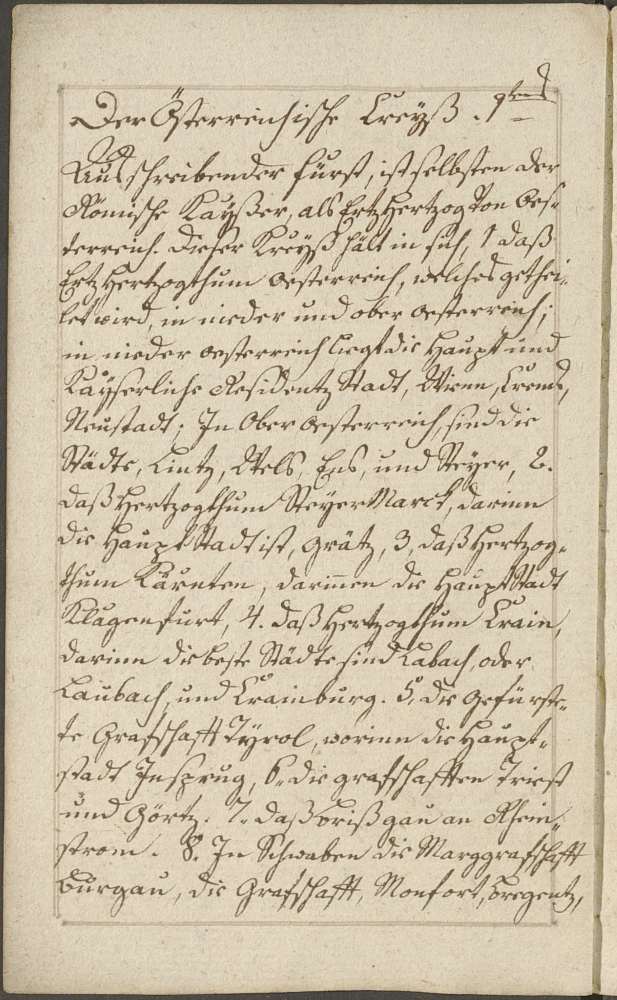 Der Österreichische Creyß. 9tens
Ausschreibender Fürst, ist selbsten der
Römische Kaÿßer, als Ertz Hertzog Von Oes-
terreich. Dießer Kreyß hält in sich, 1 daß
Ertz Hertzogthum Oesterreich, welches gethei-
let wird, in nieder und ober Oesterreich;
in nieder Oesterreich liegt die Haupt und
Kaÿserliche Residentz Stadt, Wienn, Krembs,
Neustadt; In Ober Oesterreich, sind die
Städte, Lintz, Wels, Ens, und Steÿer, 2.
daß Hertzogthum SteyerMarck, darinn
die Haupt Stadt ist, Grätz, 3, daß Hertzog-
thum Kärnten, darinnen die Haupt Stadt
Klagenfurt, 4. daß Hertzogthum Crain,
darinn die beste Städte sind Labach, oder
Laubach, und Crainburg. 5, die Gefürste-
te Grafschafft Tÿrol, worinn die Haupt-
stadt Insprug, 6. die grafschafften Triest
und Görtz. 7. daß Brißgau an Rhein-
strom. 8. In Schwaben die Marggrafschafft
Burgau, die Grafschafft, Monfort, Bregentz,